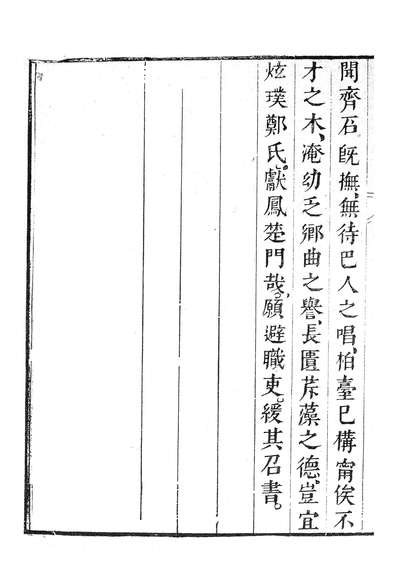 開齊石既撫、無待巴人之唱、柏臺已構甯俟不
才之木、淹幼乏鄉曲之譽、長匱斧藻之德、豈宜
炫璞鄭氏、獻鳳楚門哉、願避職吏、緩其召書。